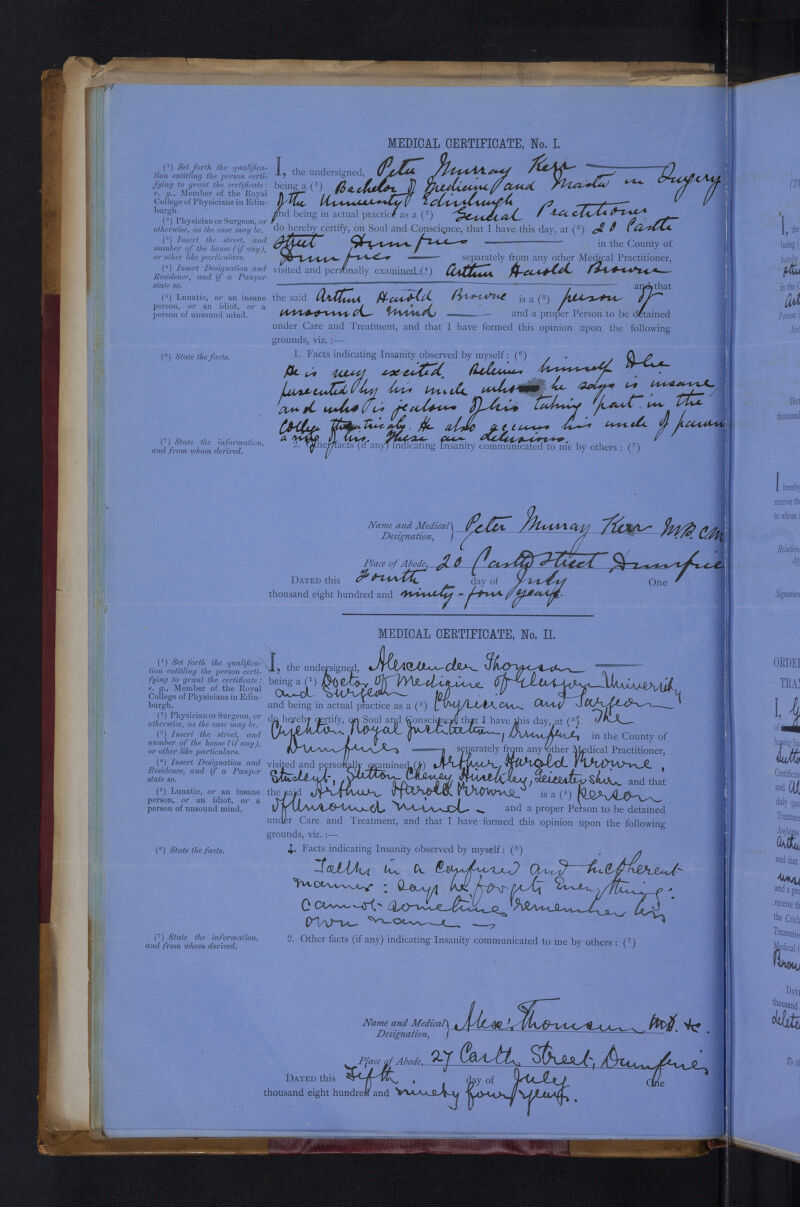 MEDICAL CERTIFICATE, No. I.
(1) Set forth the qualifica-
tion entitling the person certi-
fying to grant the certificate:
e. g., Member of the Royal
College of Physicians in Edin-
burgh.
(2) Physician or Surgeon, or
otherwise, as the case may be.
(3) Insert the street, and
number of the house (if any),
or other like particulars.
(4) Insert Designation and
Residence, and if a Pauper
state so.
(5) Lunatic, or an insane
person, or an idiot, or a
person of unsound mind.
(6) State the facts.
(7) State the information,
and from whom derived.
I, the undersigned, Peter Murray Kerr
being a (1) Bachelor of Medicine and Master in Surgery
of the University Edinburgh
and being in actual practice as a (2) General Practitioner
do hereby certify, on Soul and Conscience, that I have this day, at (3) 20 Castle
Street Dumfries in the County of
Dumfries separately from any other Medical Practitioner,
visited and personally examined (4) Arthur Harold Browne
and that
the said Arthur Harold Browne is a (5) person of
unsound mind and a proper Person to be detained
under Care and Treatment, and that I have formed this opinion upon the following
grounds, viz. :—
1. Facts indicating Insanity observed by myself: (6)
He is very excited. Believes himself to be
persecuted by his uncle who he says is insane
and who is jealous of his taking part in the
College theatricals. He also accuses his uncle of
a ring of his. These are delusions.
2. Other facts (if any) indicating Insanity communicated to me by others: (7)
Name and Medical Designation, Peter Murray Kerr M.B. C.M
Place of Abode, 20 Castle Street Dumfries
DATED this Fourth day of July One
thousand eight hundred and ninety-four years.
MEDICAL CERTIFICATE, No. II.
(1) Set forth the qualifica-
tion entitling the person certi-
fying to grant the certificate:
e. g., Member of the Royal
College of Physicians in Edin-
burgh.
(2) Physician or Surgeon, or
otherwise, as the case may be.
(3) Insert the street, and
number of the house (if any),
or other like particulars.
(4) Insert Designation and
Residence, and if a Pauper
state so.
(5) Lunatic, or an insane
person, or an idiot, or a
person of unsound mind.
(6) State the facts.
(7) State the information,
and from whom derived.
I, the undersigned, Alexander Thomson
being a (1) Doctor of Medicine of Glasgow University
and Surgeon
and being in actual practice as a (2) Physician and Surgeon
do hereby certify, on Soul and Conscience, that I have this day, at (3) The
Crichton Royal Institution, Dumfries in the County of
Dumfries separately from any other Medical Practitioner,
visited and personally examined (4) Arthur Harold Browne,
Student, Sutton Cheney, Hinckley, Leicester Shire and that
the said Arthur Harold Browne is a (5) person
of Unsound mind and a proper Person to be detained
under Care and Treatment, and that I have formed this opinion upon the following
grounds, viz. :—
1. Facts indicating Insanity observed by myself: (6)
Talks in a confused and incoherent
manner: says he forgets Everything:
cannot sometimes remember his
own name
2. Other facts (if any) indicating Insanity communicated to me by others: (7)
Name and Medical Designation, Alexr. Thomson M.D. &c.
Place of Abode, 27 Castle Street, Dumfries
DATED this Fifth day of July One
thousand eight hundred and ninety four years.